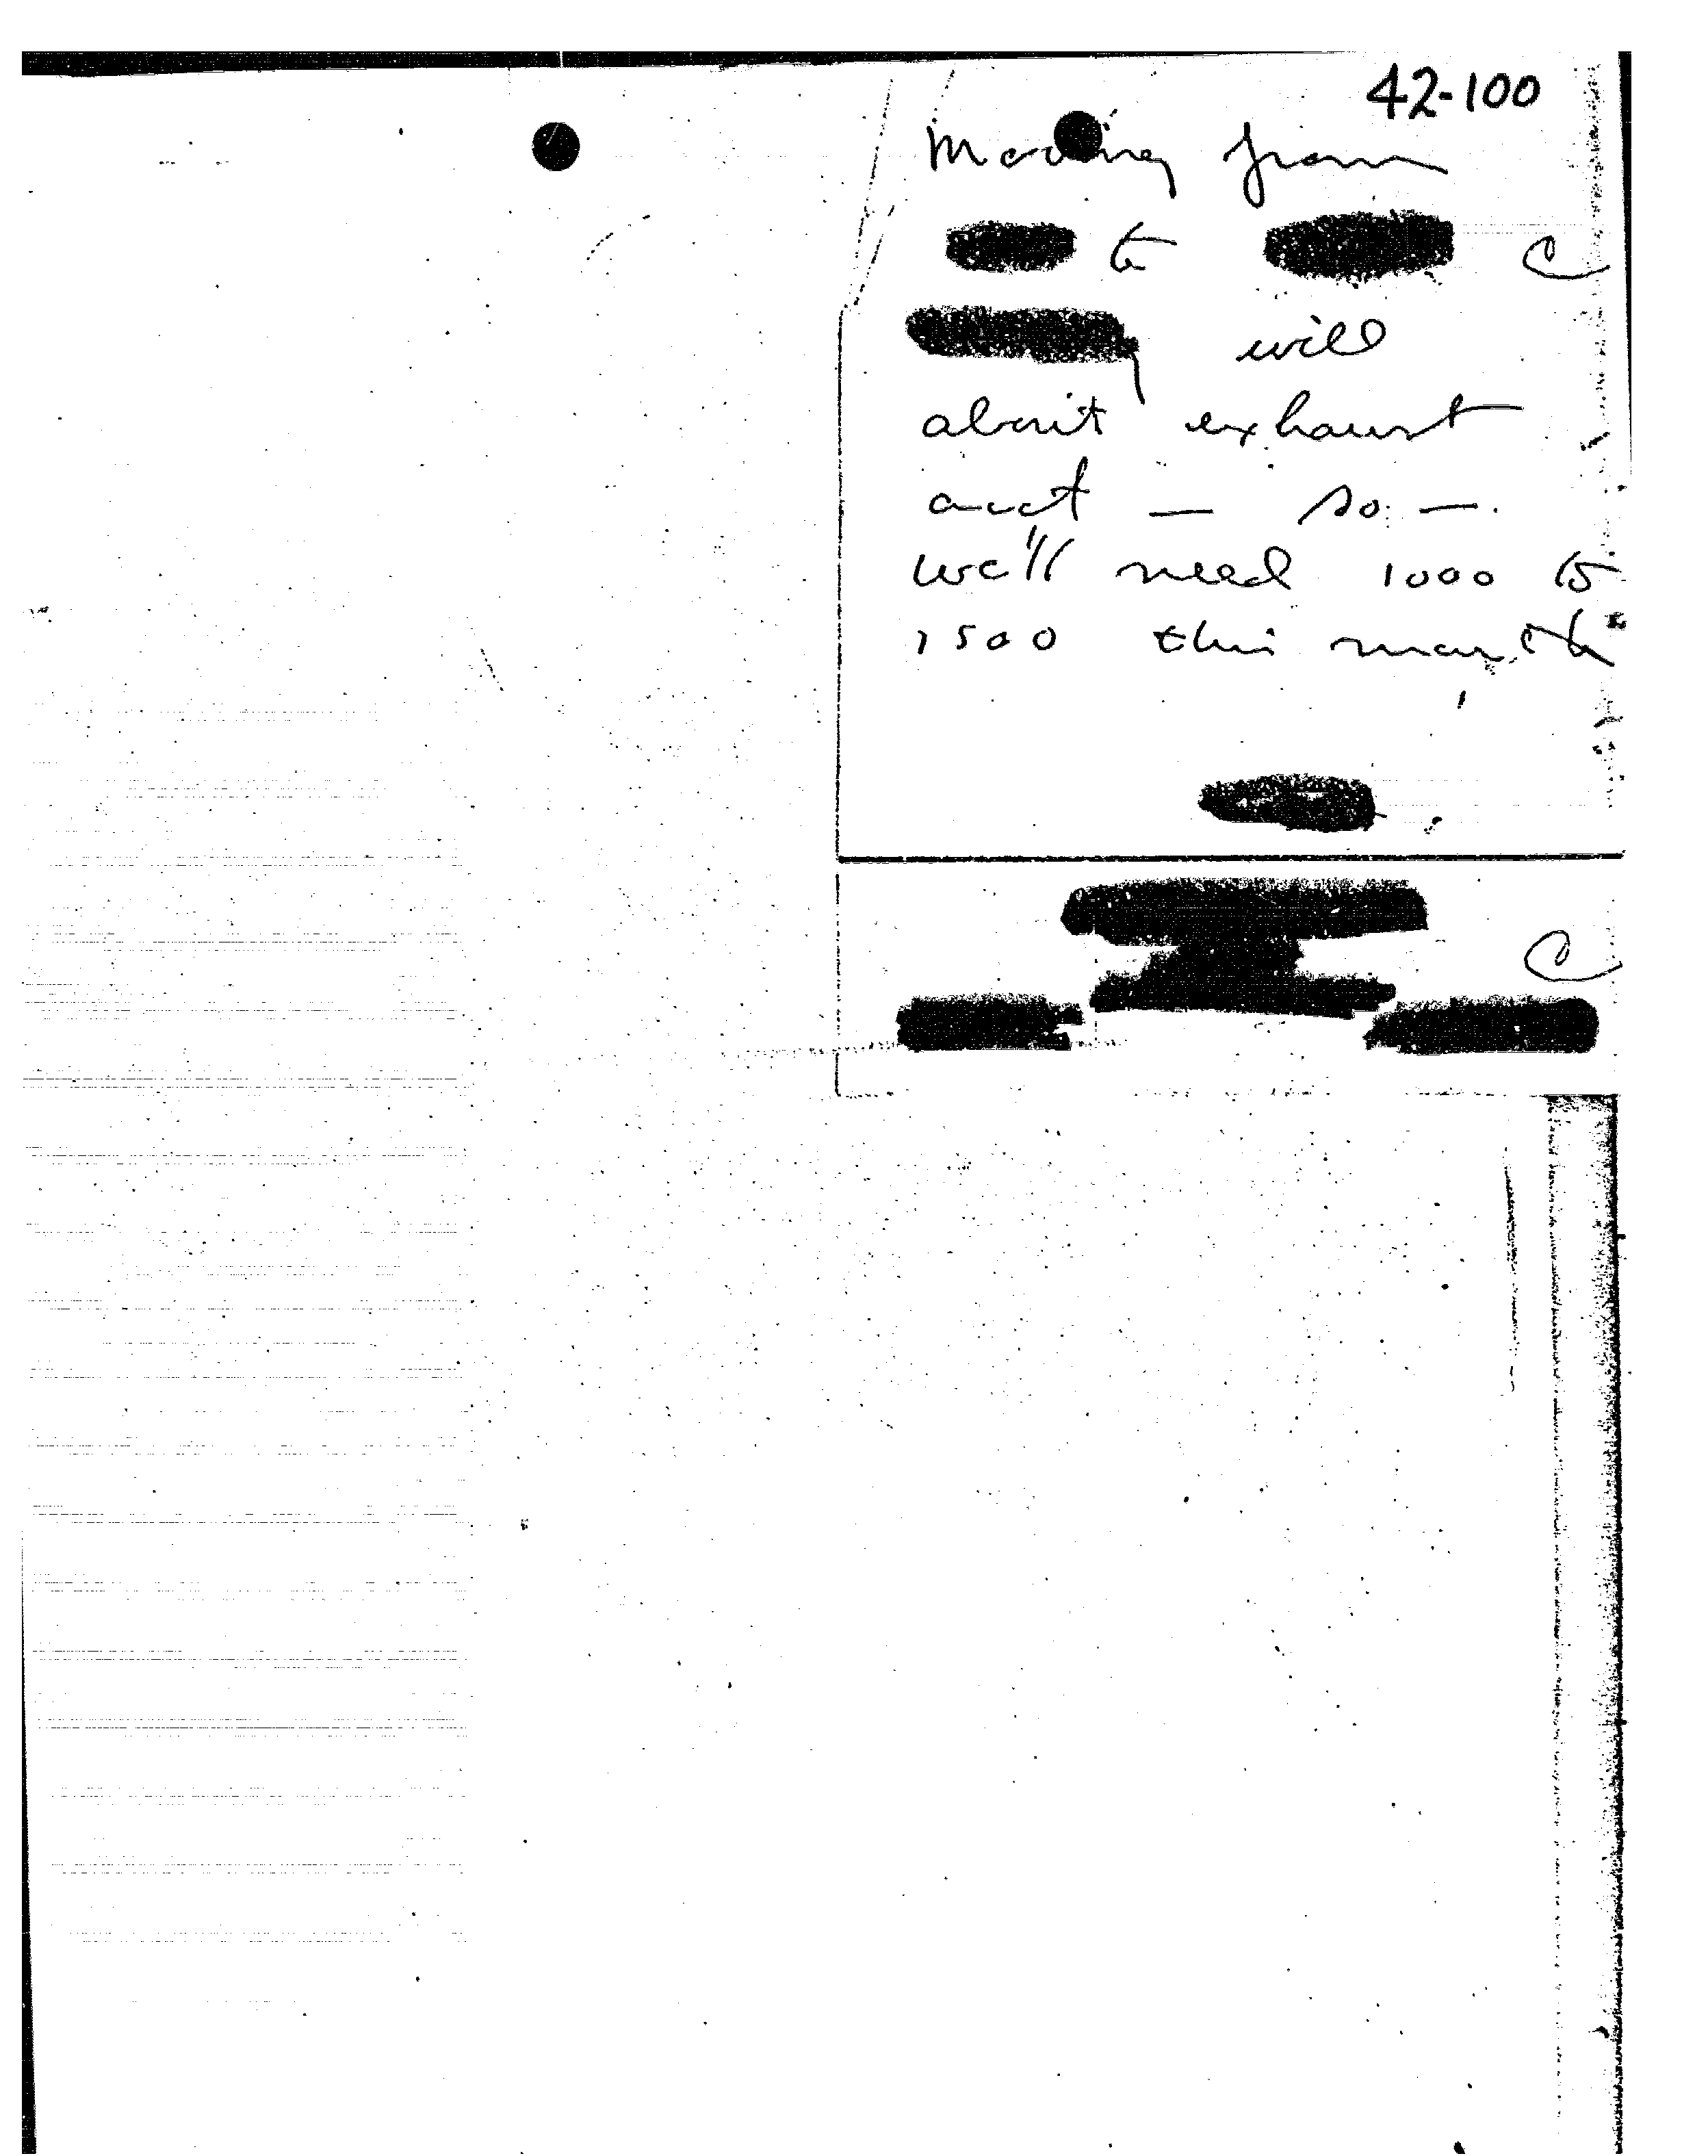 42-100
Moving from
to C
will
about exhaust
acct — so —
we'll need 1000 to
1500 this month
C